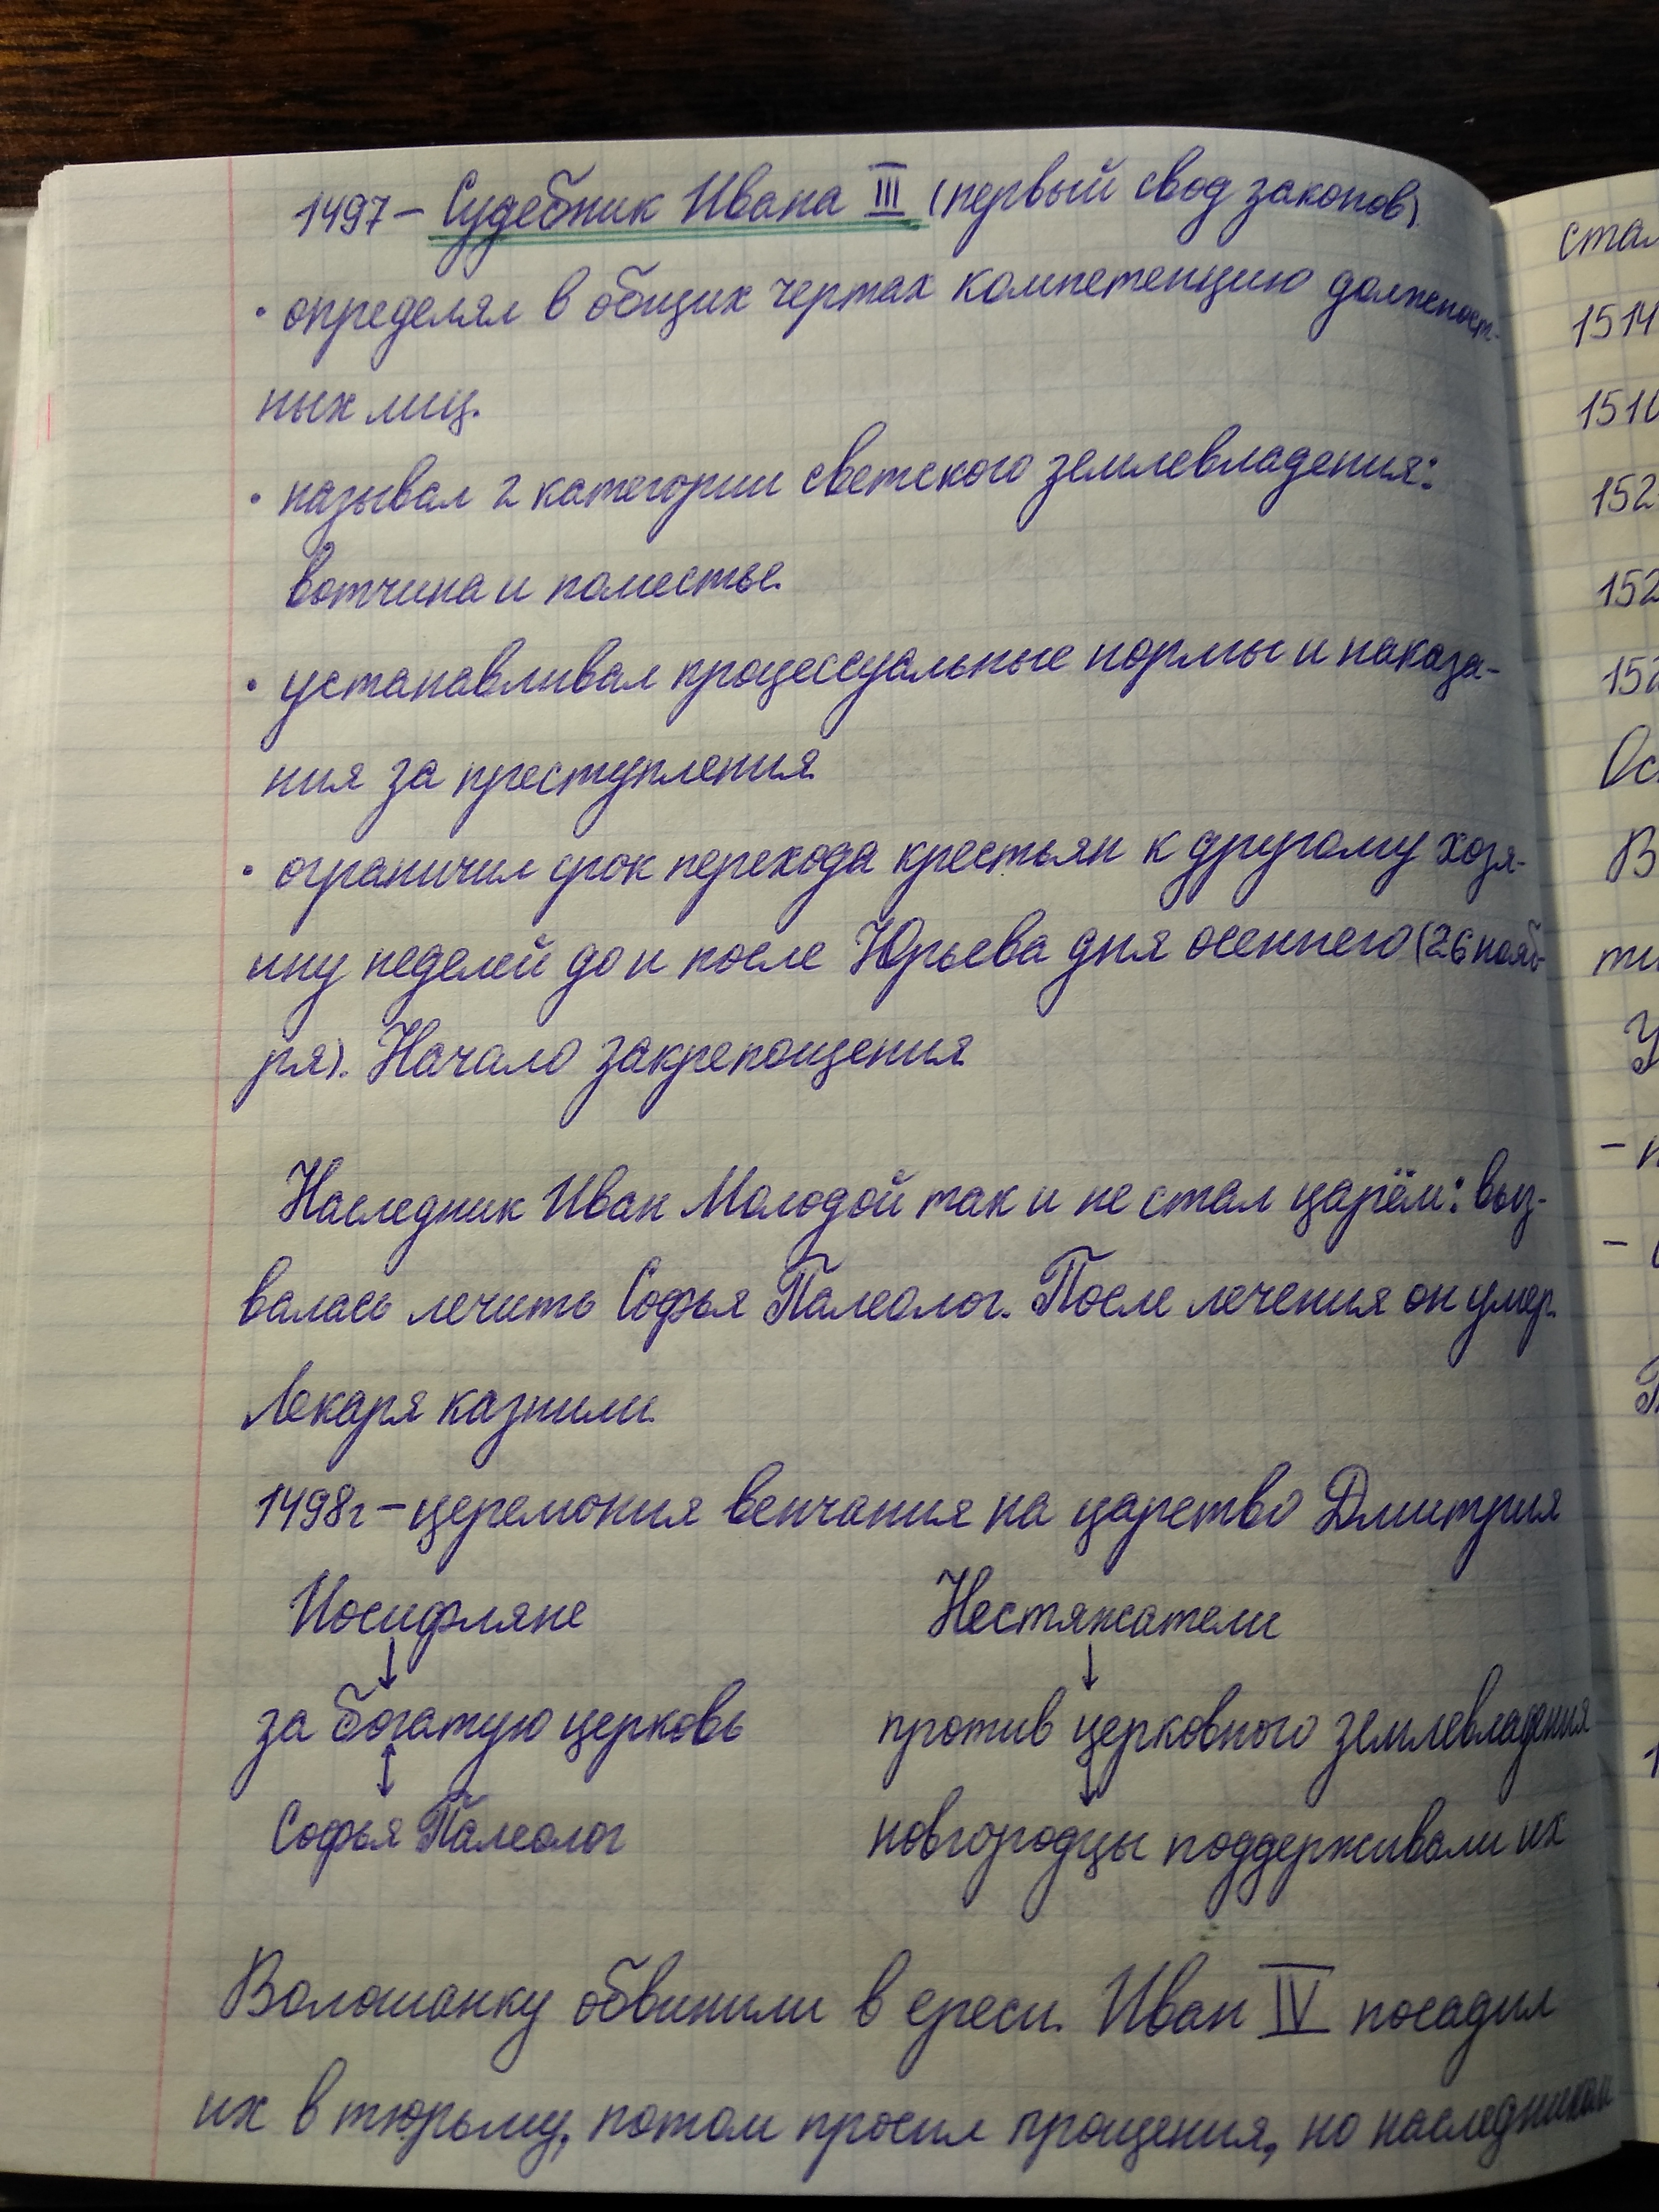 1497 – Судебник Ивана III (первый свод законов).
• определял в общих чертах компетенцию должност-
ных лиц.
• называл 2 категории светского землевладения:
вотчина и поместье.
• устанавливал процессуальные нормы и наказа-
ния за преступления
• ограничил срок перехода крестьян к другому хозя-
ину неделей до и после Юрьева дня осеннего (26 нояб-
ря). Начало закрепощения
Наследник Иван Молодой так и не стал царём: выз-
валась лечить Софья Палеолог. После лечения он умер.
Лекаря казнили.
1498г – церемония венчания на царство Дмитрия
Иосифляне Нестяжатели
↓ ↓
за богатую церковь против церковного землевладения
↕ ↓
Софья Палеолог новгородцы поддерживали их
Волошанку обвинили в ереси. Иван IV посадил
их в тюрьму, потом просил прощения, но наследником
стал
1514
151
152
152
152
Ос
В
ти
У
–
–